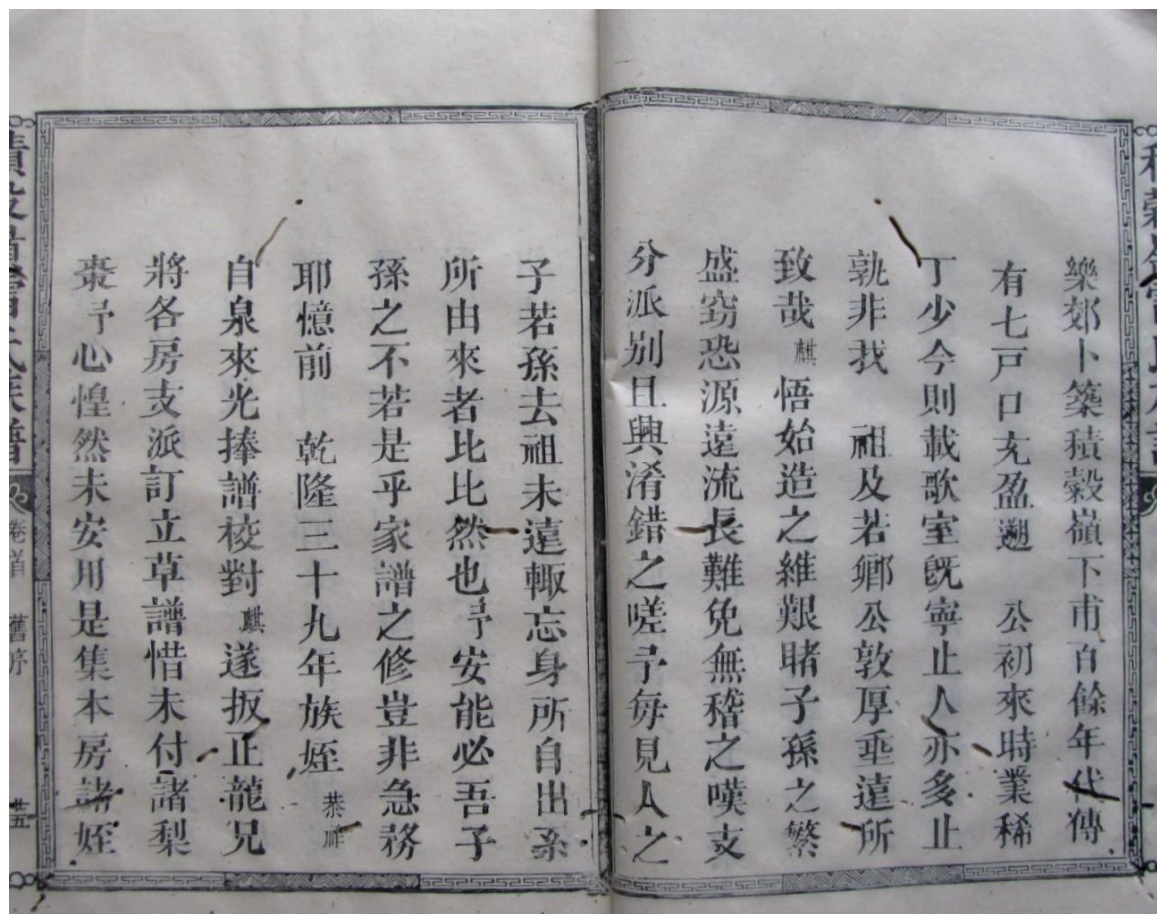 樂郊卜築積穀嶺下甫百餘年代傳
有七戸口充盈遡　公初來時業稀
丁少今則載歌室既寧止人亦多止
孰非我　祖及若鄉公敦厚垂遠所
致哉麒悟始造之維艱睹子孫之繁
盛窃恐源遠流長難免無稽之嘆支
分派別且興淆錯之嗟予每見人之
子若孫去祖未遠輙忘身所自出系
所由來者比比然也予安能必吾子
孫之不若是乎家譜之修豈非急務
耶憶前　乾隆三十九年族姪恭
自泉來光捧譜校對麒遂扳正龍兄
將各房支派訂立草譜惜未付諸梨
棗予心惶然未安用是集本房諸姪
卷首　舊序
廿五